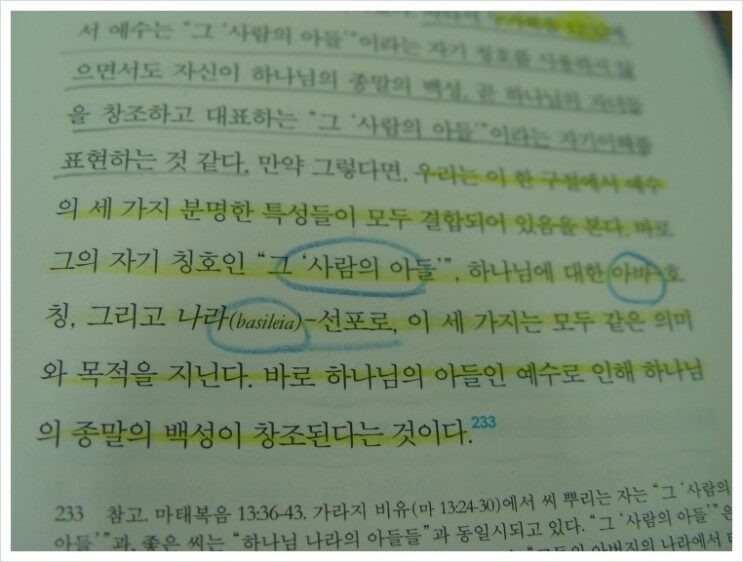 누가복음 12:32에
서 예수는 “그 ‘사람의 아들’”이라는 자기 칭호를 사용하지 않
으면서도 자신이 하나님의 종말의 백성, 곧 하나님의 자녀들
을 창조하고 대표하는 “그 ‘사람의 아들’”이라는 자기이해를
표현하는 것 같다. 만약 그렇다면, 우리는 이 한 구절에서 예수
의 세 가지 분명한 특성들이 모두 결합되어 있음을 본다. 바로
그의 자기 칭호인 “그 ‘사람의 아들’”, 하나님에 대한 아바-호
칭, 그리고 나라(basileia)-선포로, 이 세 가지는 모두 같은 의미
와 목적을 지닌다. 바로 하나님의 아들인 예수로 인해 하나님
의 종말의 백성이 창조된다는 것이다.233
233 참고. 마태복음 13:36-43. 가라지 비유(마 13:24-30)에서 씨 뿌리는 자는 “그 ‘사람의
아들’”과, 좋은 씨는 “하나님 나라의 아들들”과 동일시되고 있다. “그 ‘사람의 아들’”은
아버지의 나라에서